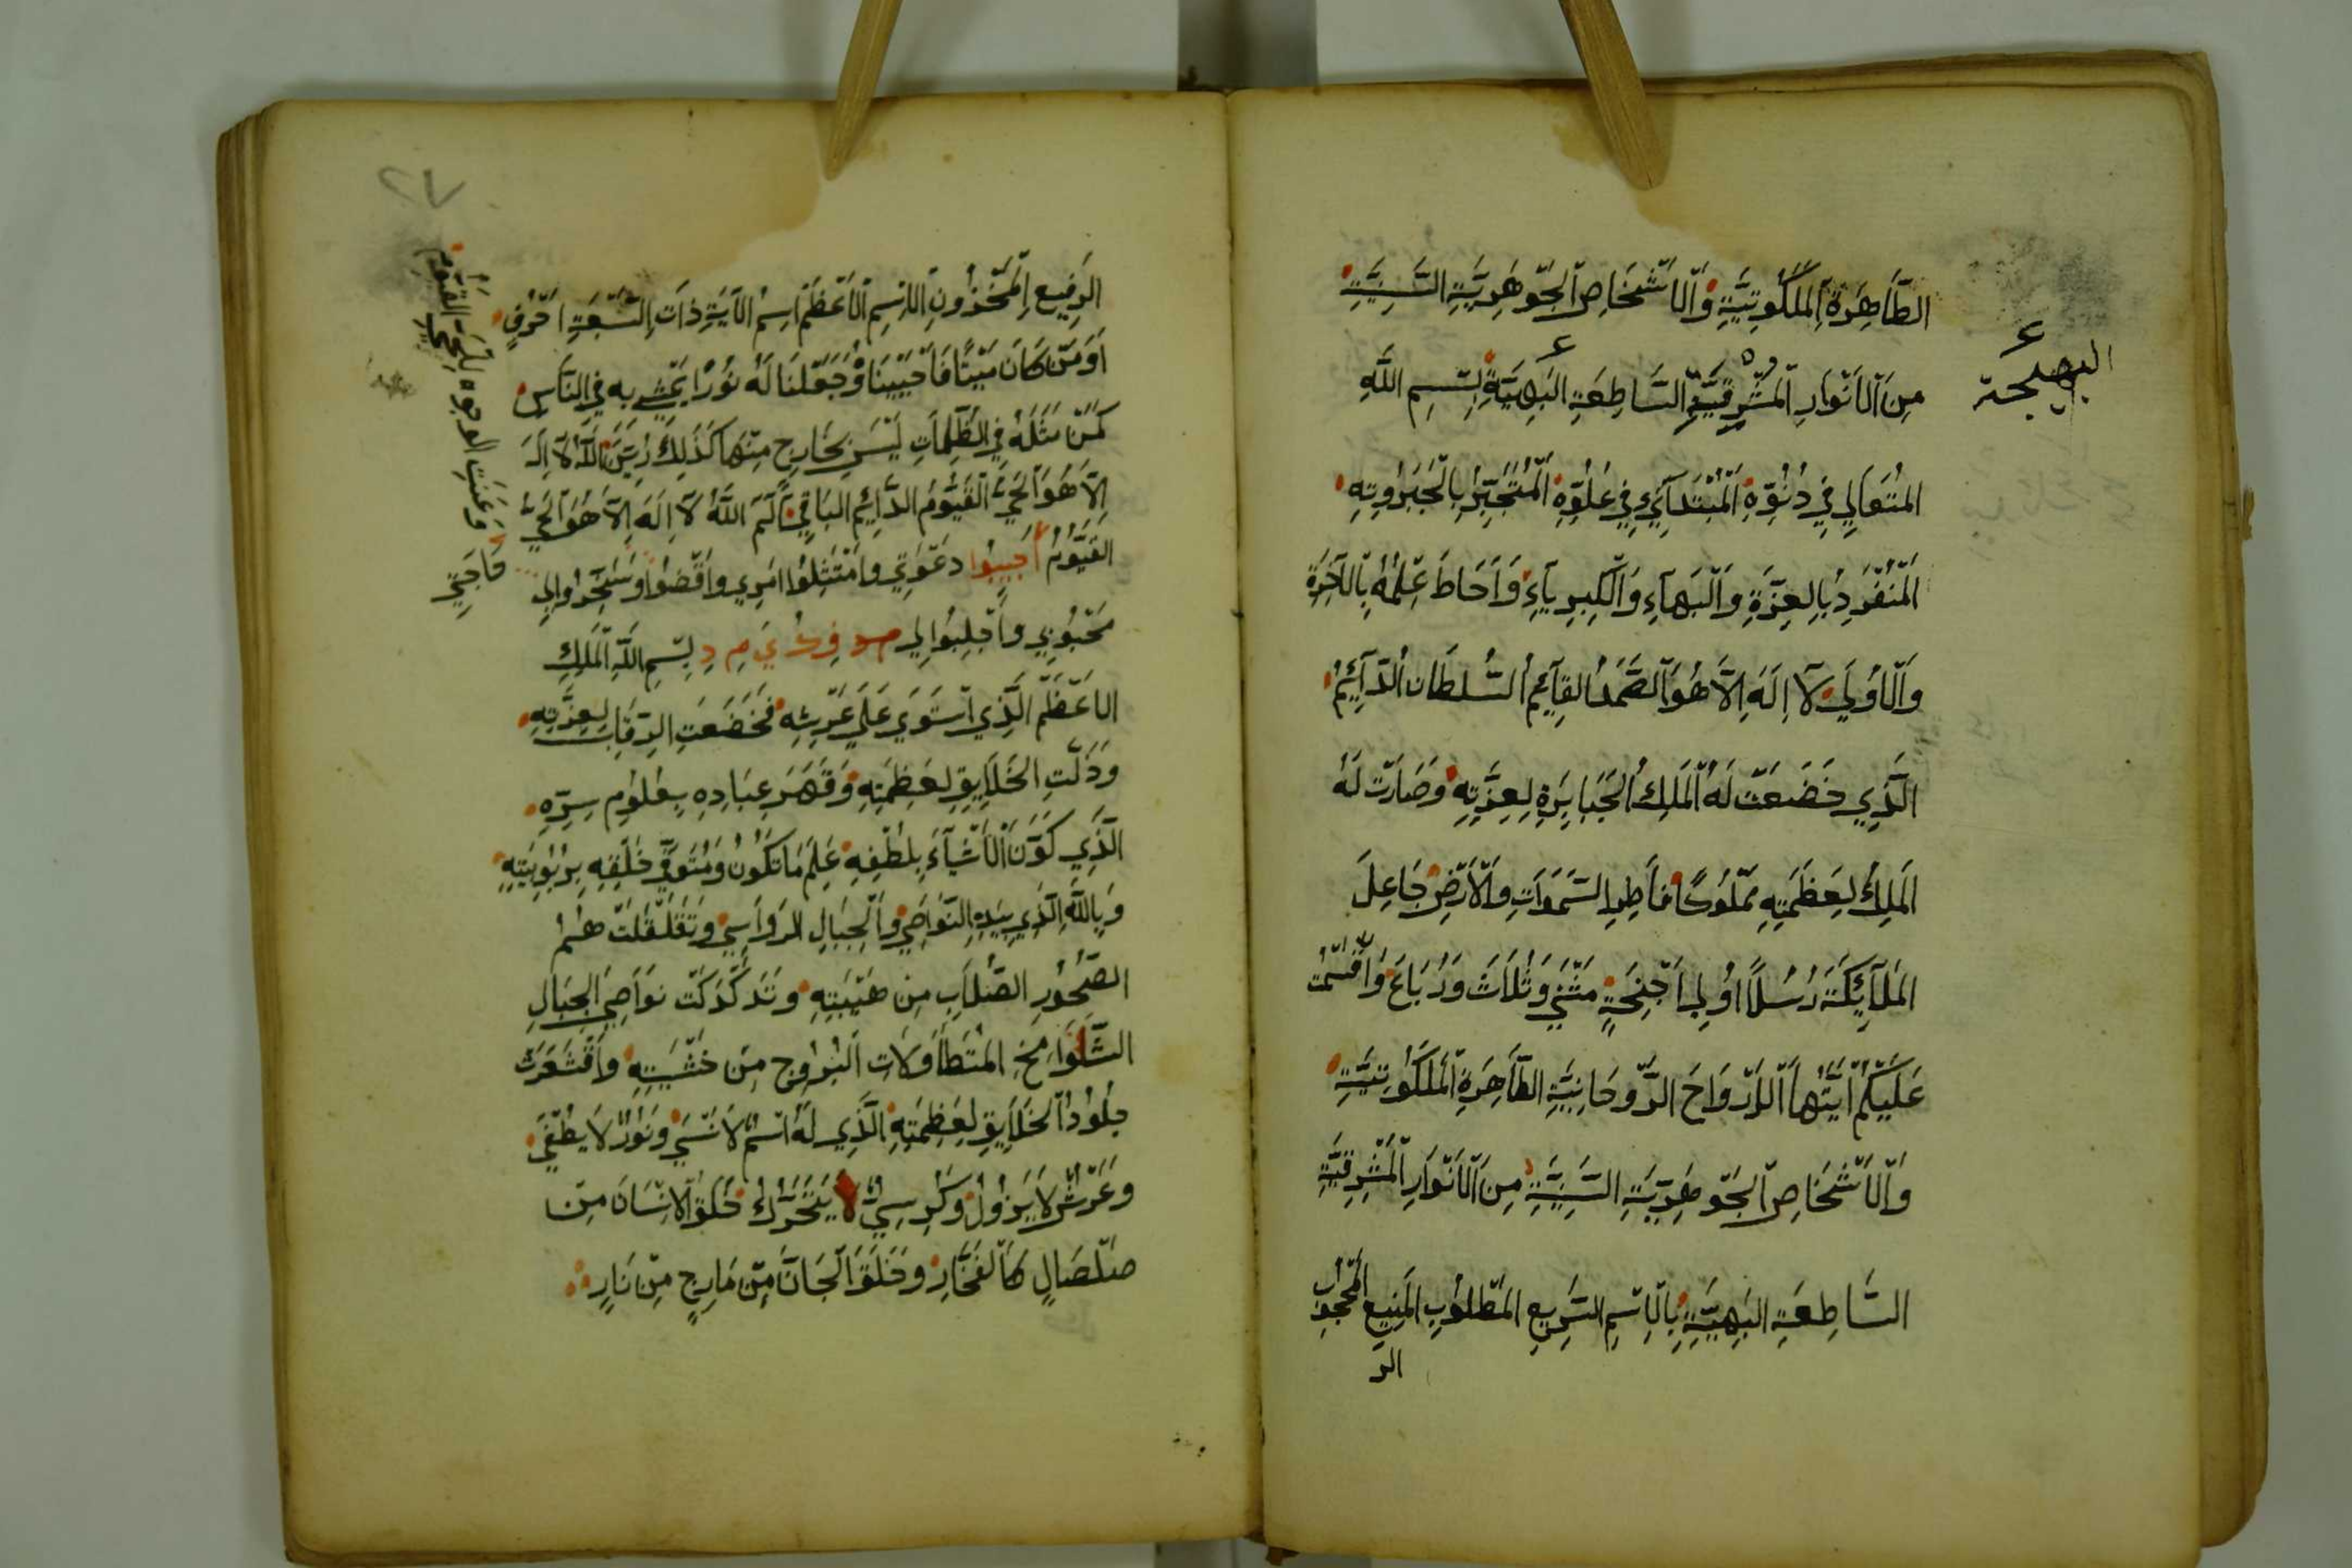 الطَّاهِرَةِ الْمَلَكُوتِيَّةِ وَالْأَشْخَاصِ الْجَوْهَرِيَّةِ السَّنِيَّةِ
مِنَ الْأَنْوَارِ الْمُشْرِقِيَّةِ السَّاطِعَةِ البَهِيَّةِ بِسْمِ اللَّهِ
البهيجة
المُتَعَالِي فِي دُنُوِّهِ الْمُبْتَدَآيِ فِي عُلُوِّهِ الْمُتَجَبِّرِ بِالْجَبَرُوتِهِ
الْمُنْفَرِدِ بِالعِزَّةِ وَالْبَهَآءِ وَالْكِبِرِيَآءِ وَأَحَاطَ عِلْمُهُ بِالآخِرَةِ
وَالْأُولَي لَآ اِلَهَ اِلَّا هُوَ الصَّمَدُ القَآئِمُ السُّلطَان الدَّآئِمُ
الَّذِي خَضَعَتْ لَهُ الْمَلِكُ الجَبَابِرَةِ لِعِزَّتِهِ وَصَارَتْ لَهُ
المَلِكُ لِعَظَمَتِهِ مَمْلُوكًا فَاطِرِ السَّمَوَاتِ وَالْأَرْضِ جَاعِلَ
المَلَآئِكَةَ رُسُلًا اوُلِي اَجْنِحَةٍ مَثْنَي وَثُلَاثَ وَرُبَاعَ وَاَقْسَمْتُ
عَلَيْكُمْ اَيَّتُهَا الْأَرْوَاحَ الرُّوحَانِيَّةِ الطَّاهِرَةِ الْمَلَكُوتِيَّةِ
وَالْأَشْخَاصِ الجَوْهَرِيَّةِ السَّنِيَّةِ مِنَ الْأَنْوَارِ الْمَشْرِقِيَّةِ
السَّاطِعَةِ البَهِيَّةِ بِالْاِسْمِ السَّرِيعِ المَطْلُوبِ المَنِيعِ
الر
الرَفِيعِ الْمَخْزُونِ الْاِسْمِ الْأَعْظَمْ اِسْمُ الآيَةِ ذَاتِ السَّبْعَةِ اَحْرُفٍ
اَوَ مَنْ كَانَ مَيْتًا فَأَحْيَيْنَاهُ وَجَعَلنَا لَهُ نُورًا يَمْشِي بِه فِي النَّاسِ
كَمَنْ مَثَلُهُ فِي الظُّلُمَاتِ لَيْسَ بِخَارِجٍ مِنْهَا كَذَلِكَ زُيِّنَ اللَّهُ لَا اِلَهَ
اِلَّا هُوَ الحَيُّ القَيُّومُ الدَّائِمِ البَاقِي آلَم اللَّهُ لَا اِلَهَ اِلَّا هُوَ الحَيُّ
القَيُّومُ اَجِيبُوا دَعْوَتِي وَامْتَثِلُوا امْرِي وَاقْضُوا وَسَخِّرُوا لِي
مَحْبُوبِي وَاجْلِبُوا لِي بِسْمِ اللَّهِ الْمَلِكِ
الاَعْظَمْ الَّذِي اسْتَوَي عَلَي عَرْشِهِ فَخَضَعَتِ الرِقَابِ لِعِزَّتِهِ
وَذَلَّتِ الخَلَايِقِ لِعَظَمَتِهِ وَقَهَرَ عِبَادِهِ بِعُلُوِم سِرِّهِ
الَّذَي كَوَّنَ الْأَشْيَآءَ بِلُطْفِهِ عَلِمَ مَا تَكُونُ وَمُتَوَفِّي خَلْقِهِ بِرُبُوبِيَّتِهِ
وَبِاللَّهِ الَّذِي بِيَدِهِ النَّوَاصِي وَالْجِبَالِ الرَوَاسِي وَتَقَلْقَلَتْ صُمُ
الصُّخُورِ الصِّلَابِ مِنْ هَيْبَتِهِ وَتَدَكْدَكَتْ نوَاصِيَ الجِبَالِ
الشَّوَامِخِ المُتَطَاوِلَاتِ البُرُوجِ مِنْ خَشْيَتِهِ وَاقْشَعَرَّتْ
جُلُودُ الخَلَايِقِ لِعَظِمَتِهِ الَّذِي لَهُ اسْمٌ لَا يُنْسَي وَنُورٌ لَا يُطْفَي
وَعَرْشٌ لَا يَزُولُ وَكُرسِيٌّ لَا يَتَحَرَّكُ خَلَقَ الْاِنْسَانَ مِنْ
صَلْصَالٍ كَالْفَخَّارِ وَخَلَقَ الْجَانَّ مِنْ مَارِجٍ مِنْ نَارٍ
وَعَنَتِ الوجوه لِلْحَيِّ القَيُّومِ
حَاجَتِي